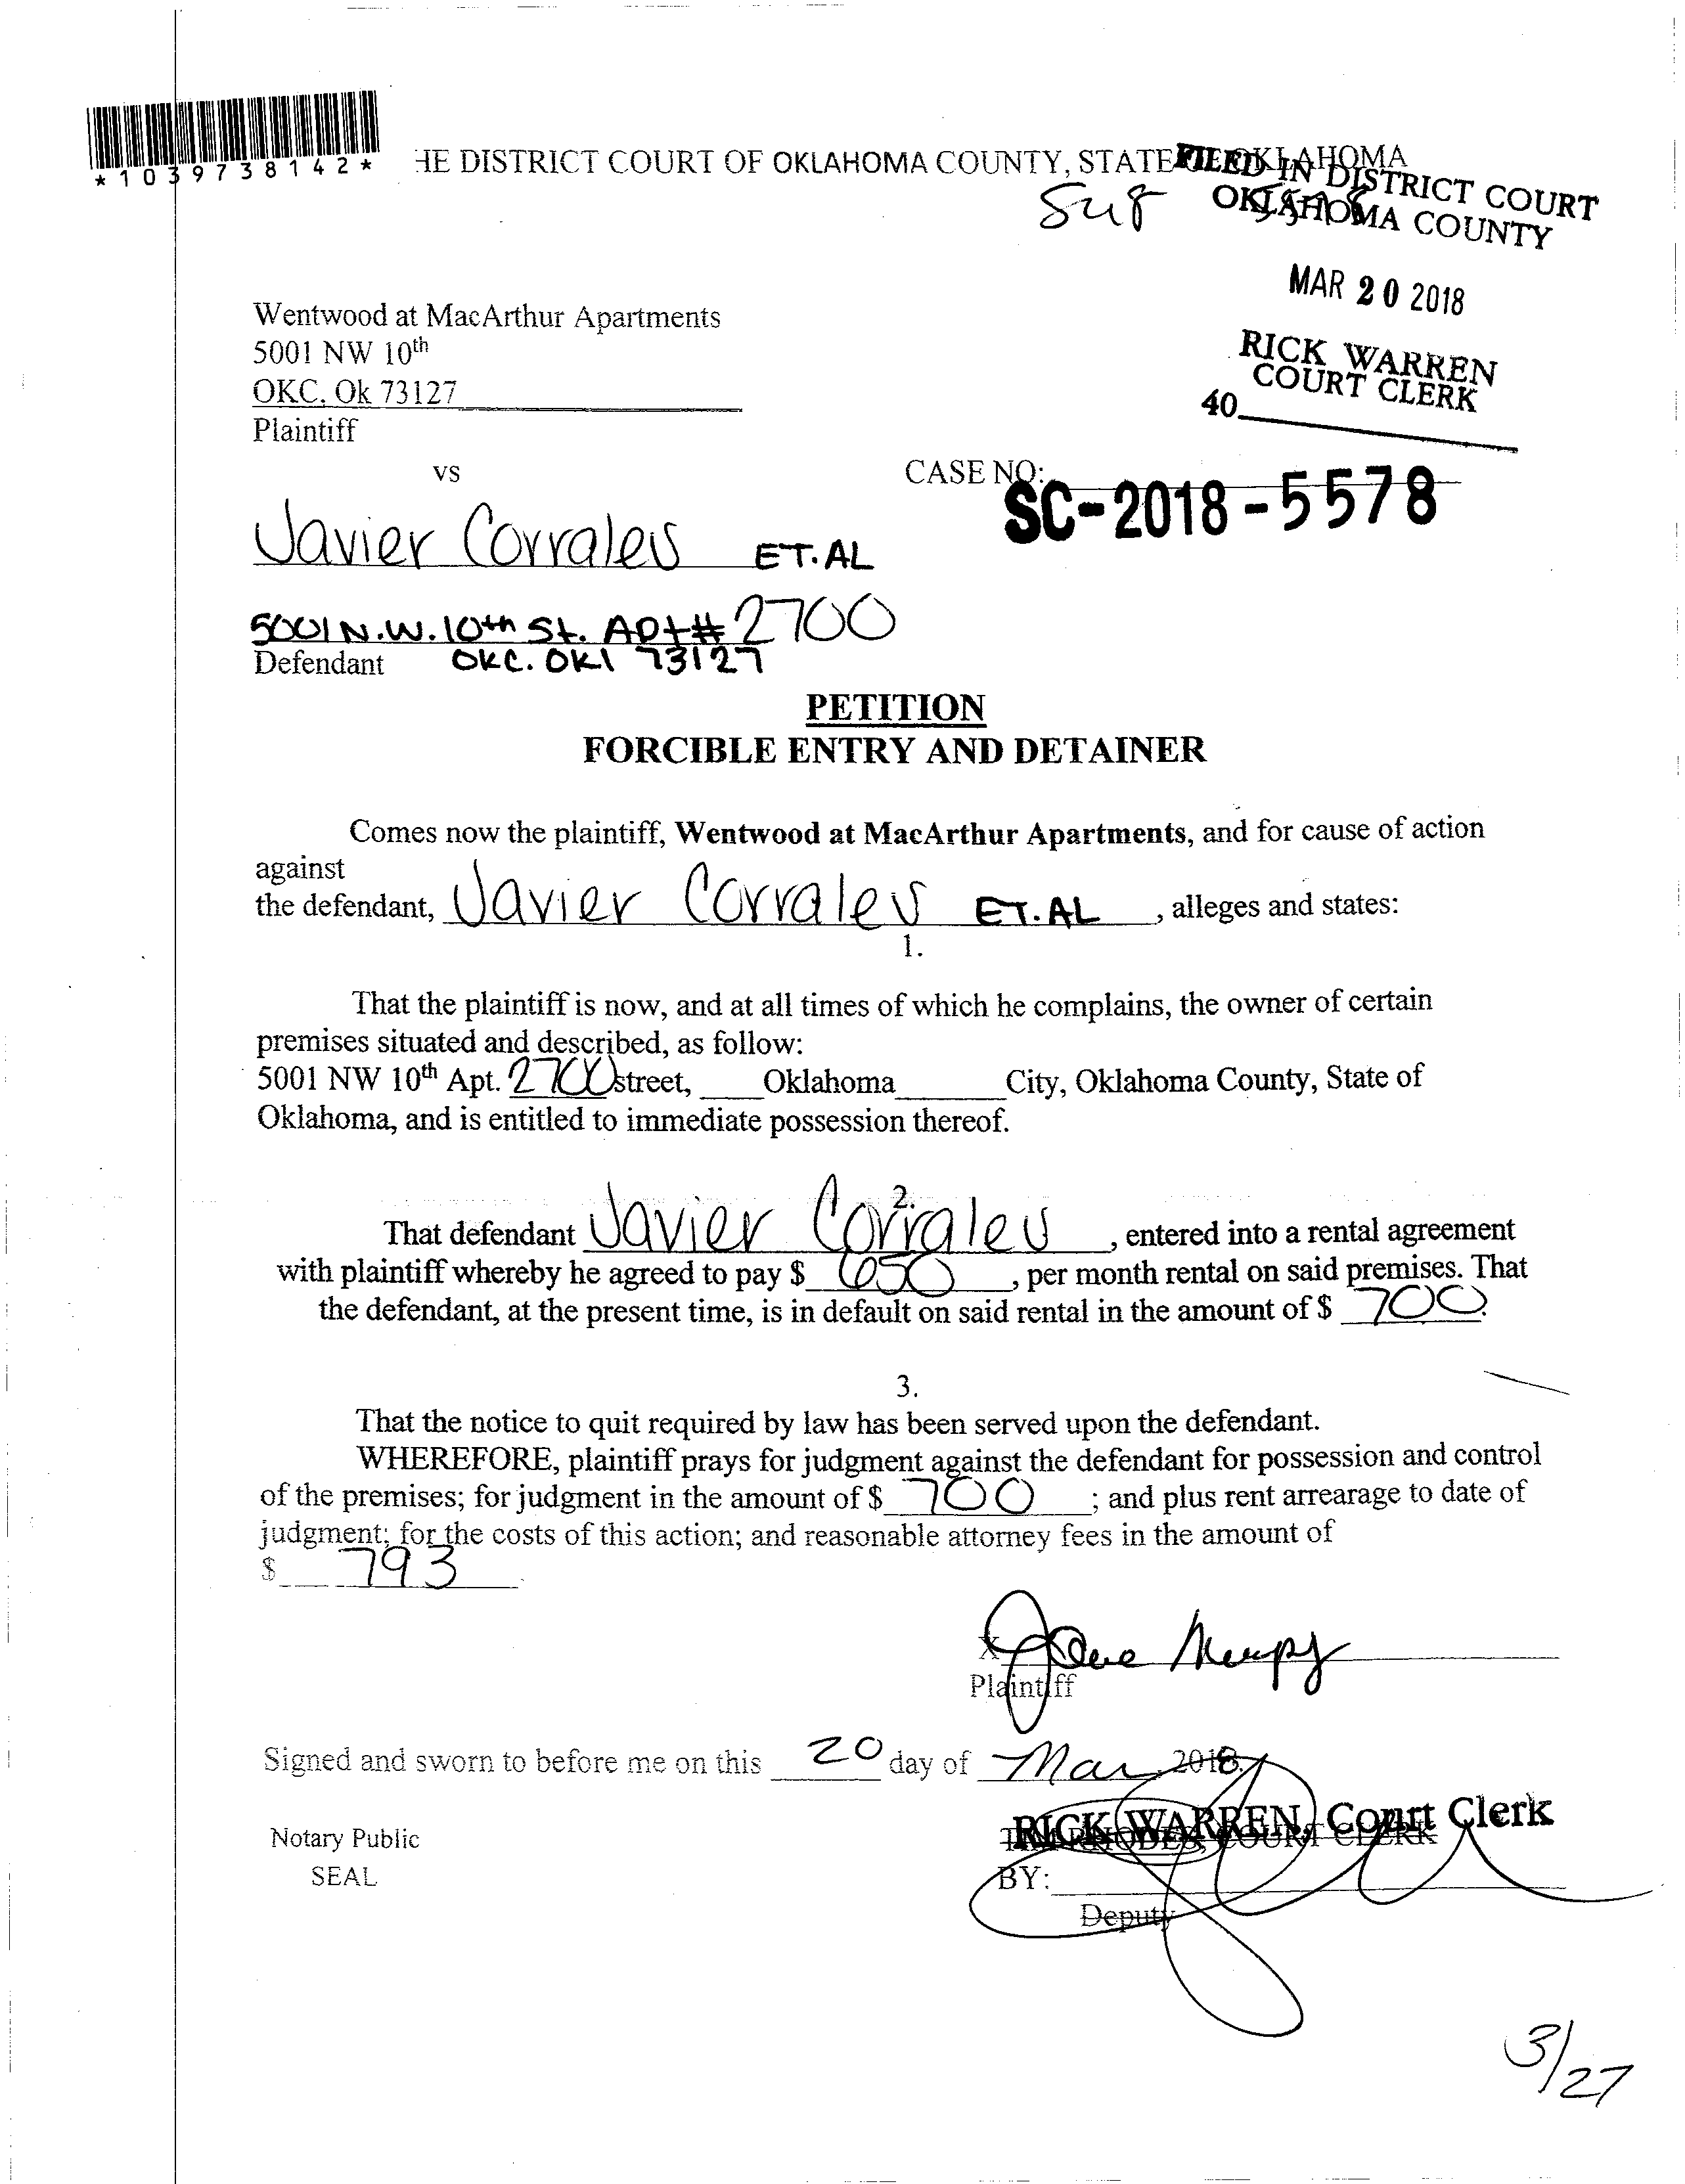 *1039738142*
HE DISTRICT COURT OF OKLAHOMA COUNTY, STATE OF OKLAHOMA
FILED IN DISTRICT COURT
OKLAHOMA COUNTY
MAR 20 2018
RICK WARREN
COURT CLERK
40
Wentwood at MacArthur Apartments
5001 NW 10th
OKC. Ok 73127
Plaintiff
vs
CASE NO:
SC-2018-5578
Javier Corrales ET.AL
5001 N.W. 10th St. Apt# 2700
Defendant OKC. OKl 73127
PETITION
FORCIBLE ENTRY AND DETAINER
Comes now the plaintiff, Wentwood at MacArthur Apartments, and for cause of action
against
the defendant, Javier Corrales ET.AL, alleges and states:
1.
That the plaintiff is now, and at all times of which he complains, the owner of certain
premises situated and described, as follow:
5001 NW 10th Apt. 2700 street, ____Oklahoma_______City, Oklahoma County, State of
Oklahoma, and is entitled to immediate possession thereof.
2.
That defendant Javier Corrales, entered into a rental agreement
with plaintiff whereby he agreed to pay $ 650, per month rental on said premises. That
the defendant, at the present time, is in default on said rental in the amount of $ 700.
3.
That the notice to quit required by law has been served upon the defendant.
WHEREFORE, plaintiff prays for judgment against the defendant for possession and control
of the premises; for judgment in the amount of $ 700 ; and plus rent arrearage to date of
judgment; for the costs of this action; and reasonable attorney fees in the amount of
$ 793
X
Plaintiff
Signed and sworn to before me on this 20 day of Mar, 2018.
RICK WARREN, Court Clerk
TIM RHODES, COURT CLERK
Notary Public
SEAL
BY:
Deputy
3/27